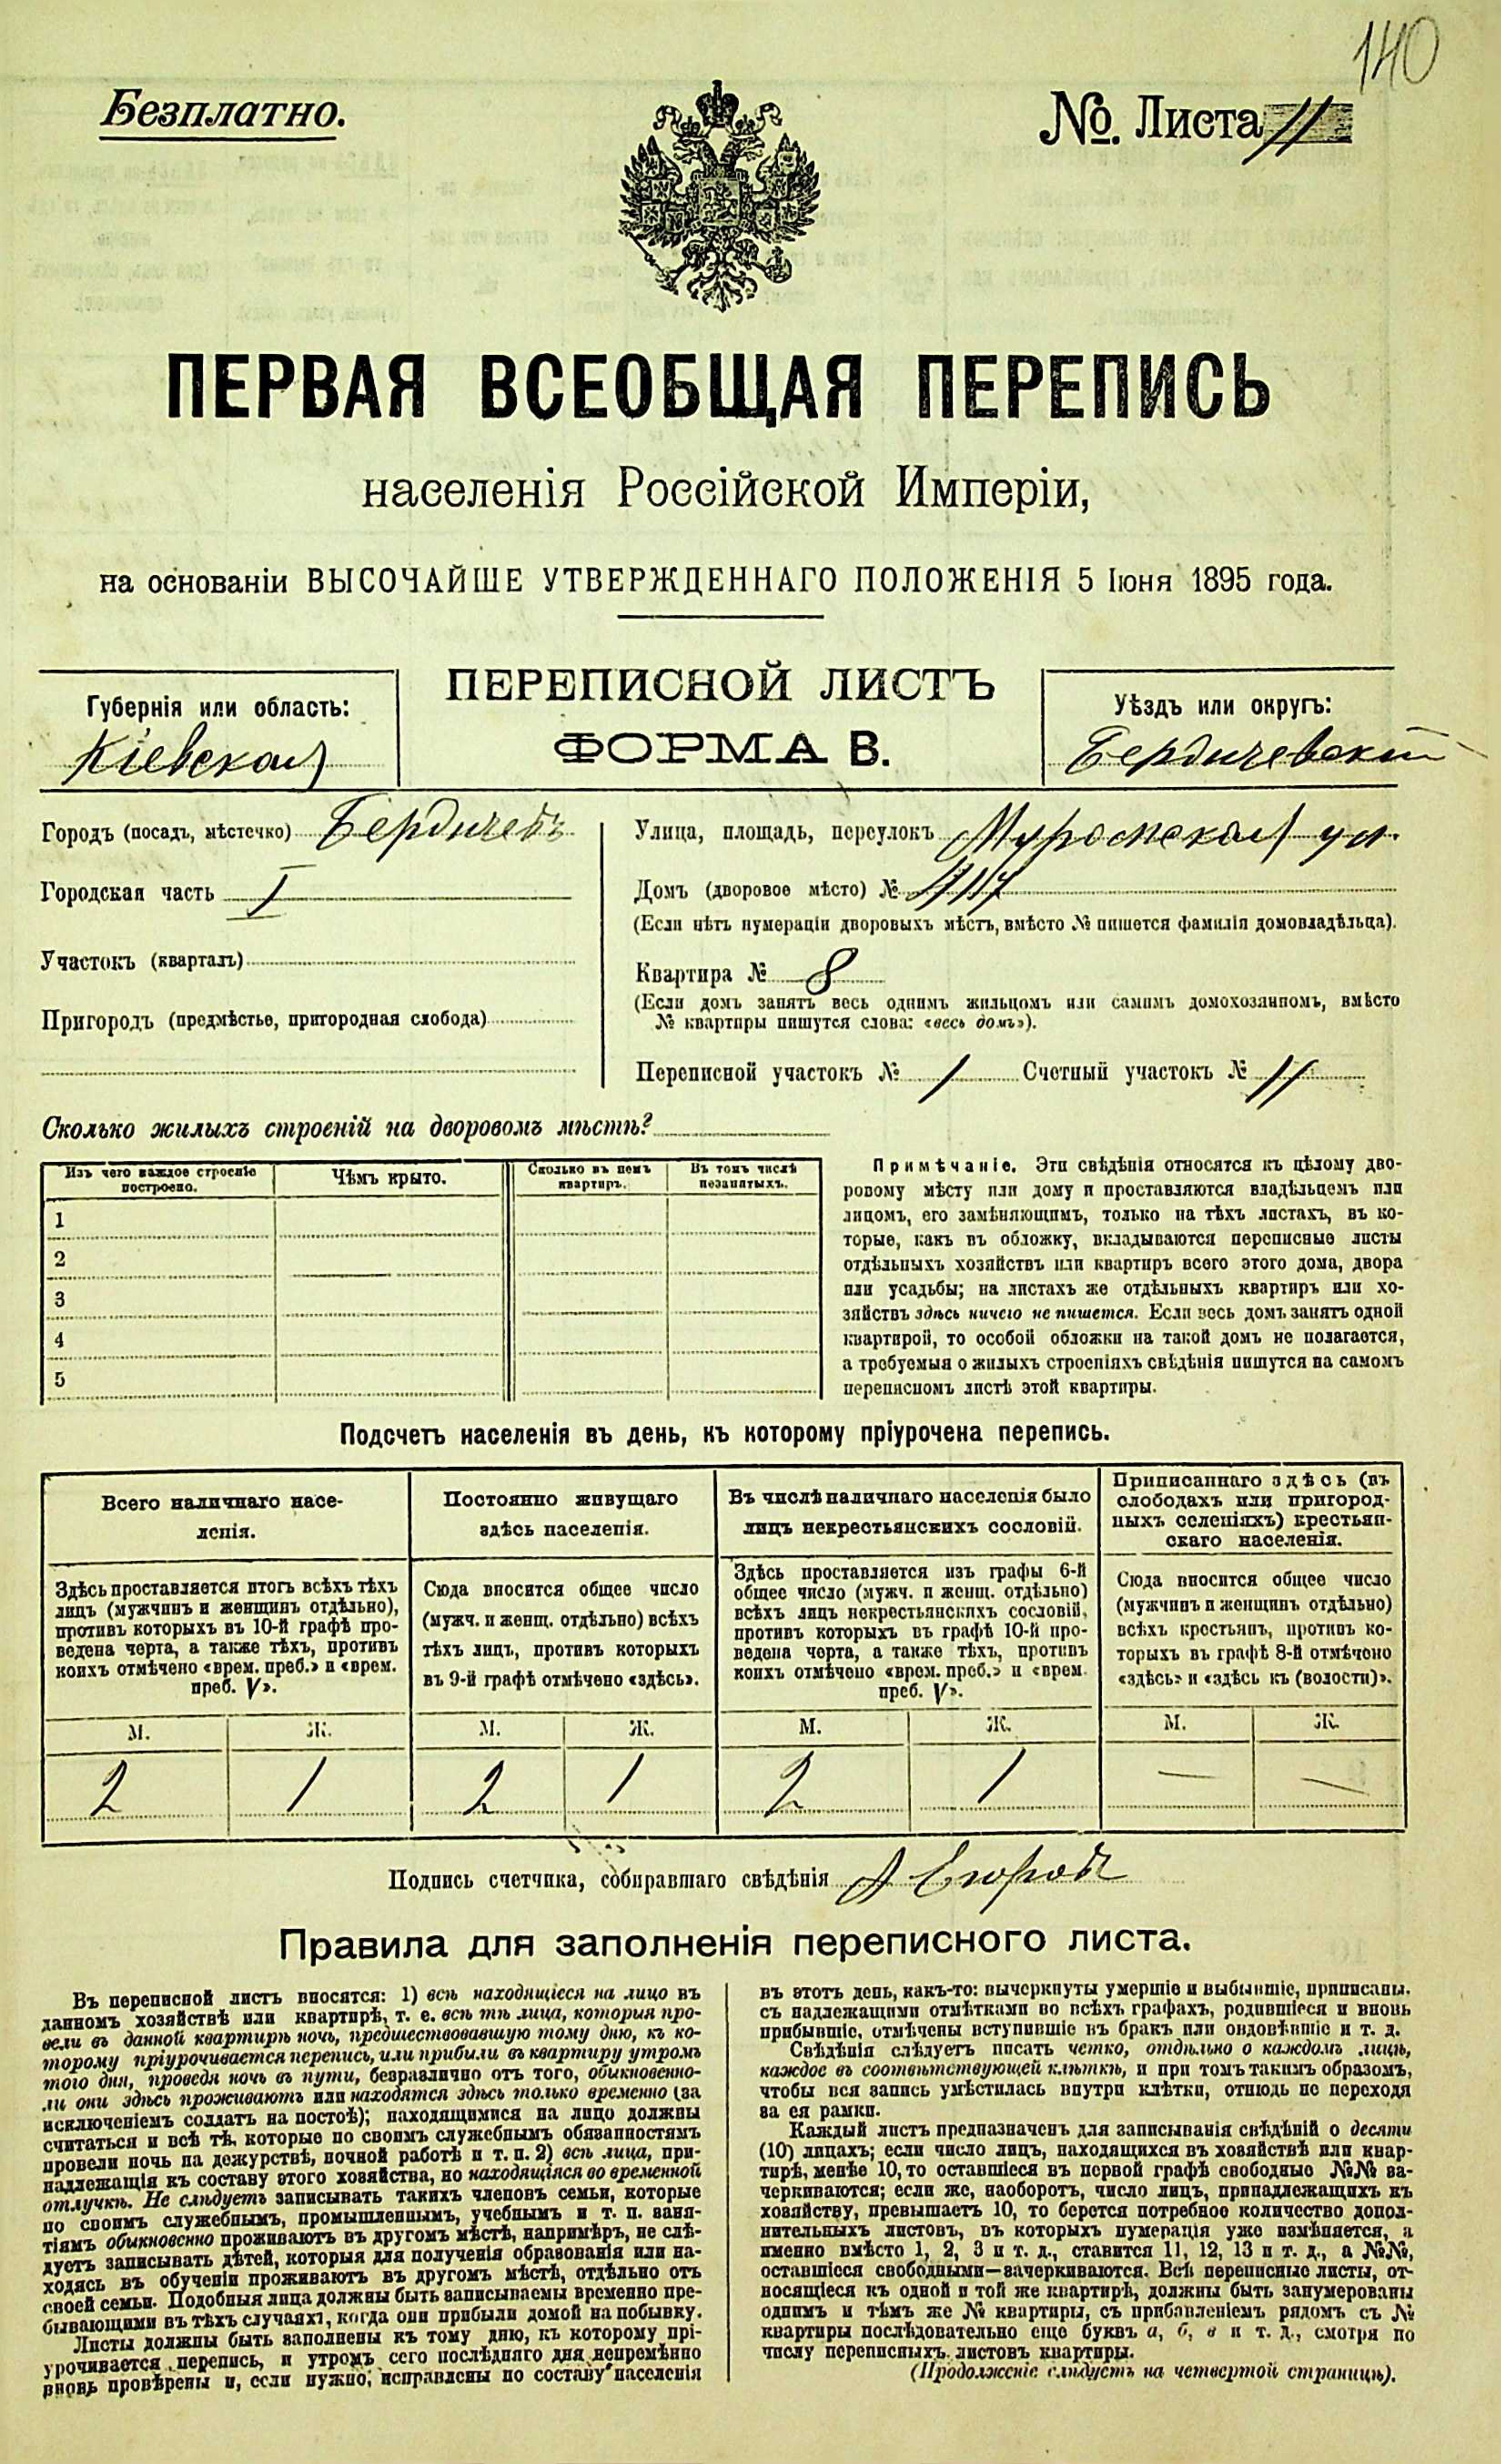 140
Безплатно.
№. Листа 11
ПЕРВАЯ ВСЕОБЩАЯ ПЕРЕПИСЬ
населенія Россійской Имперіи,
на основаніи ВЫСОЧАЙШЕ УТВЕРЖДЕННАГО ПОЛОЖЕНІЯ 5 Іюня 1895 года.
ПЕРЕПИСНОЙ ЛИСТЪ
ФОРМА В.
Губернія или область:
Кіевская
Уѣздъ или округъ:
Бердичевскій
Городъ (посадъ, мѣстечко) Бердичевъ
Городская часть I
Участокъ (кварталъ)
Пригородъ (предмѣстье, пригородная слобода)
Улица, площадь, переулокъ Муромская ул.
Домъ (дворовое мѣсто) №
(Если нѣтъ нумераціи дворовыхъ мѣстъ, вмѣсто № пишется фамилія домовладѣльца).
Квартира № 8
(Если домъ занятъ весь однимъ жильцомъ или самимъ домохозяиномъ, вмѣсто
№ квартиры пишутся слова: «весь домъ»).
Переписной участокъ № 1 Счетный участокъ № 11
Сколько жилыхъ строеній на дворовомъ мѣстѣ?
Изъ чего каждое строеніе
построено.
Чѣмъ крыто.
Сколько въ немъ
квартиръ.
Въ томъ числѣ
незанятыхъ.
1
2
3
4
5
Примѣчаніе. Эти свѣдѣнія относятся къ цѣлому дво-
ровому мѣсту или дому и проставляются владѣльцемъ или
лицомъ, его замѣняющимъ, только на тѣхъ листахъ, въ ко-
торые, какъ въ обложку, вкладываются переписные листы
отдѣльныхъ хозяйствъ или квартиръ всего этого дома, двора
или усадьбы; на листахъ же отдѣльныхъ квартиръ или хо-
зяйствъ здѣсь ничего не пишется. Если весь домъ занятъ одной
квартирой, то особой обложки на такой домъ не полагается,
а требуемыя о жилыхъ строеніяхъ свѣдѣнія пишутся на самомъ
переписномъ листѣ этой квартиры.
Подсчетъ населенія въ день, къ которому пріурочена перепись.
Всего наличнаго насе-
ленія.
Постоянно живущаго
здѣсь населенія.
Въ числѣ наличнаго населенія было
лицъ некрестьянскихъ сословій.
Приписаннаго здѣсь (въ
слободахъ или пригород-
ныхъ селеніяхъ) крестьян-
скаго населенія.
Здѣсь проставляется итогъ всѣхъ тѣхъ
лицъ (мужчинъ и женщинъ отдѣльно),
противъ которыхъ въ 10-й графѣ про-
ведена черта, а также тѣхъ, противъ
коихъ отмѣчено «врем. преб.» и «врем.
преб. V».
Сюда вносится общее число
(мужч. и женщ. отдѣльно) всѣхъ
тѣхъ лицъ, противъ которыхъ
въ 9-й графѣ отмѣчено «здѣсь».
Здѣсь проставляется изъ графы 6-й
общее число (мужч. и женщ. отдѣльно)
всѣхъ лицъ некрестьянскихъ сословій,
противъ которыхъ въ графѣ 10-й про-
ведена черта, а также тѣхъ, противъ
коихъ отмѣчено «врем. преб.» и «врем.
преб. V».
Сюда вносится общее число
(мужчинъ и женщинъ отдѣльно)
всѣхъ крестьянъ, противъ ко-
торыхъ въ графѣ 8-й отмѣчено
«здѣсь» и «здѣсь къ (волости)».
М. Ж. М. Ж. М. Ж. М. Ж.
2 1 2 1 2 1 — —
Подпись счетчика, собиравшаго свѣдѣнія А Егоровъ
Правила для заполненія переписного листа.
Въ переписной листъ вносятся: 1) всѣ находящіеся на лицо въ
данномъ хозяйствѣ или квартирѣ, т. е. всѣ тѣ лица, которыя про-
вели въ данной квартирѣ ночь, предшествовавшую тому дню, къ ко-
торому пріурочивается перепись, или прибыли въ квартиру утромъ
того дня, проведя ночь въ пути, безразлично отъ того, обыкновенно-
ли они здѣсь проживаютъ или находятся здѣсь только временно (за
исключеніемъ солдатъ на постоѣ); находящимися на лицо должны
считаться и всѣ тѣ, которые по своимъ служебнымъ обязанностямъ
провели ночь на дежурствѣ, ночной работѣ и т. п. 2) всѣ лица, при-
надлежащія къ составу этого хозяйства, но находящіяся во временной
отлучкѣ. Не слѣдуетъ записывать такихъ членовъ семьи, которые
по своимъ служебнымъ, промышленнымъ, учебнымъ и т. п. заня-
тіямъ обыкновенно проживаютъ въ другомъ мѣстѣ, напримѣръ, не слѣ-
дуетъ записывать дѣтей, которыя для полученія образованія или на-
ходясь въ обученіи проживаютъ въ другомъ мѣстѣ, отдѣльно отъ
своей семьи. Подобныя лица должны быть записываемы временно пре-
бывающими въ тѣхъ случаяхъ, когда они прибыли домой на побывку.
Листы должны быть заполнены къ тому дню, къ которому прі-
урочивается перепись, и утромъ сего послѣдняго дня непремѣнно
вновь провѣрены и, если нужно, исправлены по составу населенія
въ этотъ день, какъ-то: вычеркнуты умершіе и выбывшіе, приписаны.
съ надлежащими отмѣтками во всѣхъ графахъ, родившіеся и вновь
прибывшіе, отмѣчены вступившіе въ бракъ или овдовѣвшіе и т. д.
Свѣдѣнія слѣдуетъ писать четко, отдѣльно о каждомъ лицѣ,
каждое въ соотвѣтствующей клѣткѣ, и при томъ такимъ образомъ,
чтобы вся запись умѣстилась внутри клѣтки, отнюдь не переходя
за ея рамки.
Каждый листъ предназначенъ для записыванія свѣдѣній о десяти
(10) лицахъ; если число лицъ, находящихся въ хозяйствѣ или квар-
тирѣ, менѣе 10, то оставшіеся въ первой графѣ свободные №№ за-
черкиваются; если же, наоборотъ, число лицъ, принадлежащихъ къ
хозяйству, превышаетъ 10, то берется потребное количество допол-
нительныхъ листовъ, въ которыхъ нумерація уже измѣняется, а
именно вмѣсто 1, 2, 3 и т. д., ставится 11, 12, 13 и т. д., а №№,
оставшіеся свободными—зачеркиваются. Всѣ переписные листы, от-
носящіеся къ одной и той же квартирѣ, должны быть занумерованы
однимъ и тѣмъ же № квартиры, съ прибавленіемъ рядомъ съ №
квартиры послѣдовательно еще буквъ а, б, в и т. д., смотря по
числу переписныхъ листовъ квартиры.
(Продолженіе слѣдуетъ на четвертой страницѣ).